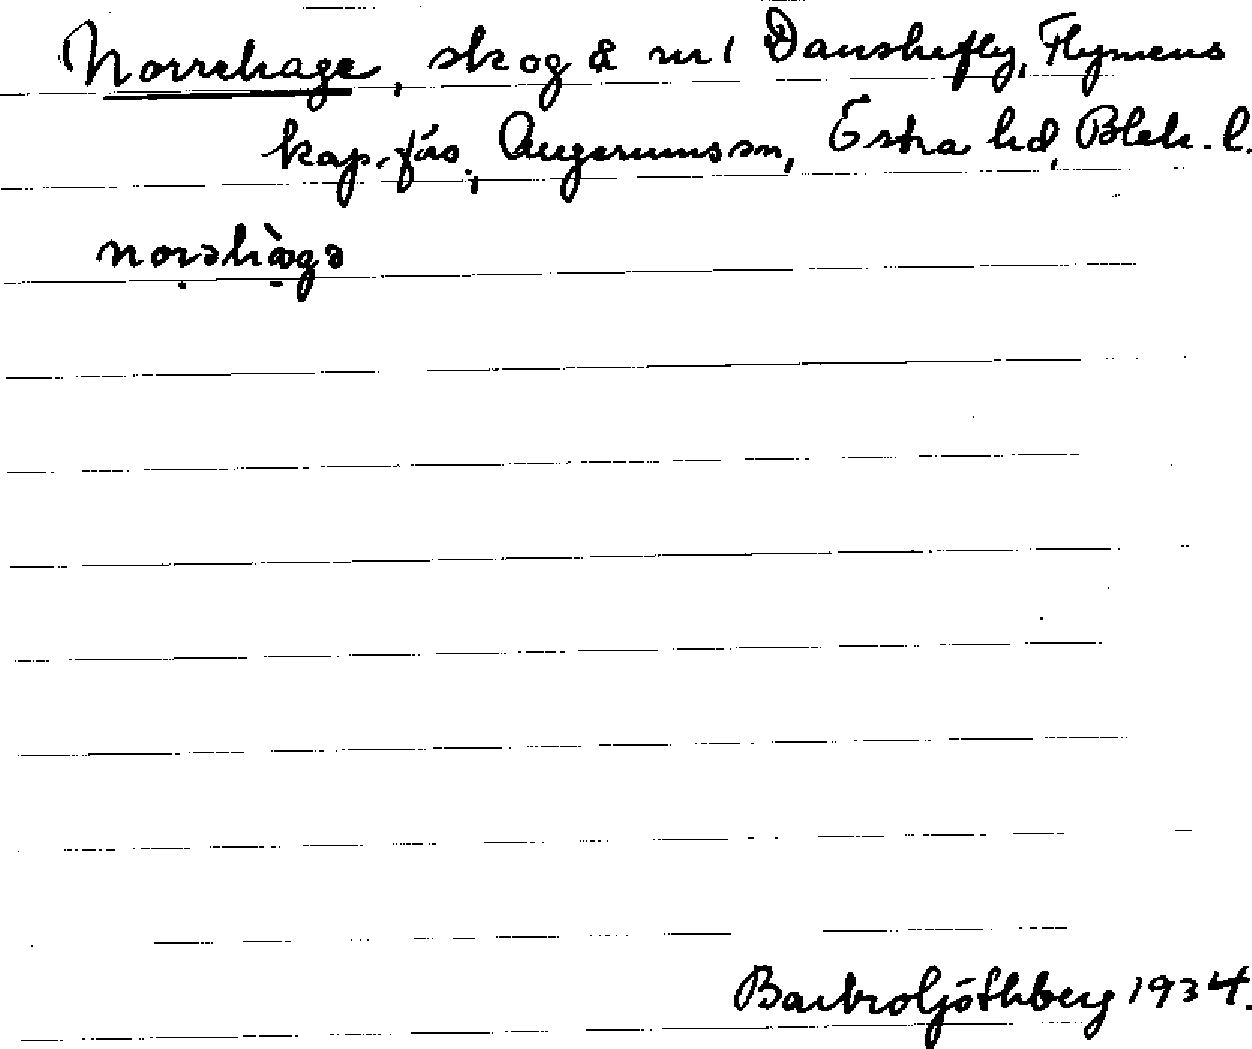 Norrehage, skog å nr 1 Danskefly, Flymens
kap.-förs., Augerums sn, Östra hd, Blek. l.
norəhàgə
Barbro Ljóthberg 1934.